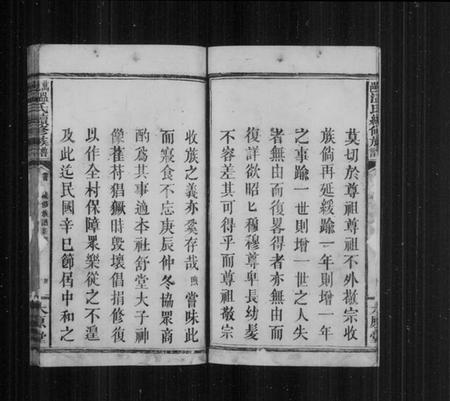 莫切於尊祖尊祖不外掇宗收
族倘再延緩踰一年則增一年
之事踰一世則增一世之人失
者無由而復畧得者亦無由而
復詳欲昭匕穆穆尊卑長幼髮
不容差其可得乎而尊祖敬宗
收族之義亦奚存哉 嘗味此
而寢食不忘庚辰仲冬協眾商
酌為其事適本社舒堂大子神
像萑苻猖獗時毀壞倡捐修復
以作全村保障眾樂從之不遑
及此迄民國辛巳節屆中和之
溫氏續修族譜
太原堂